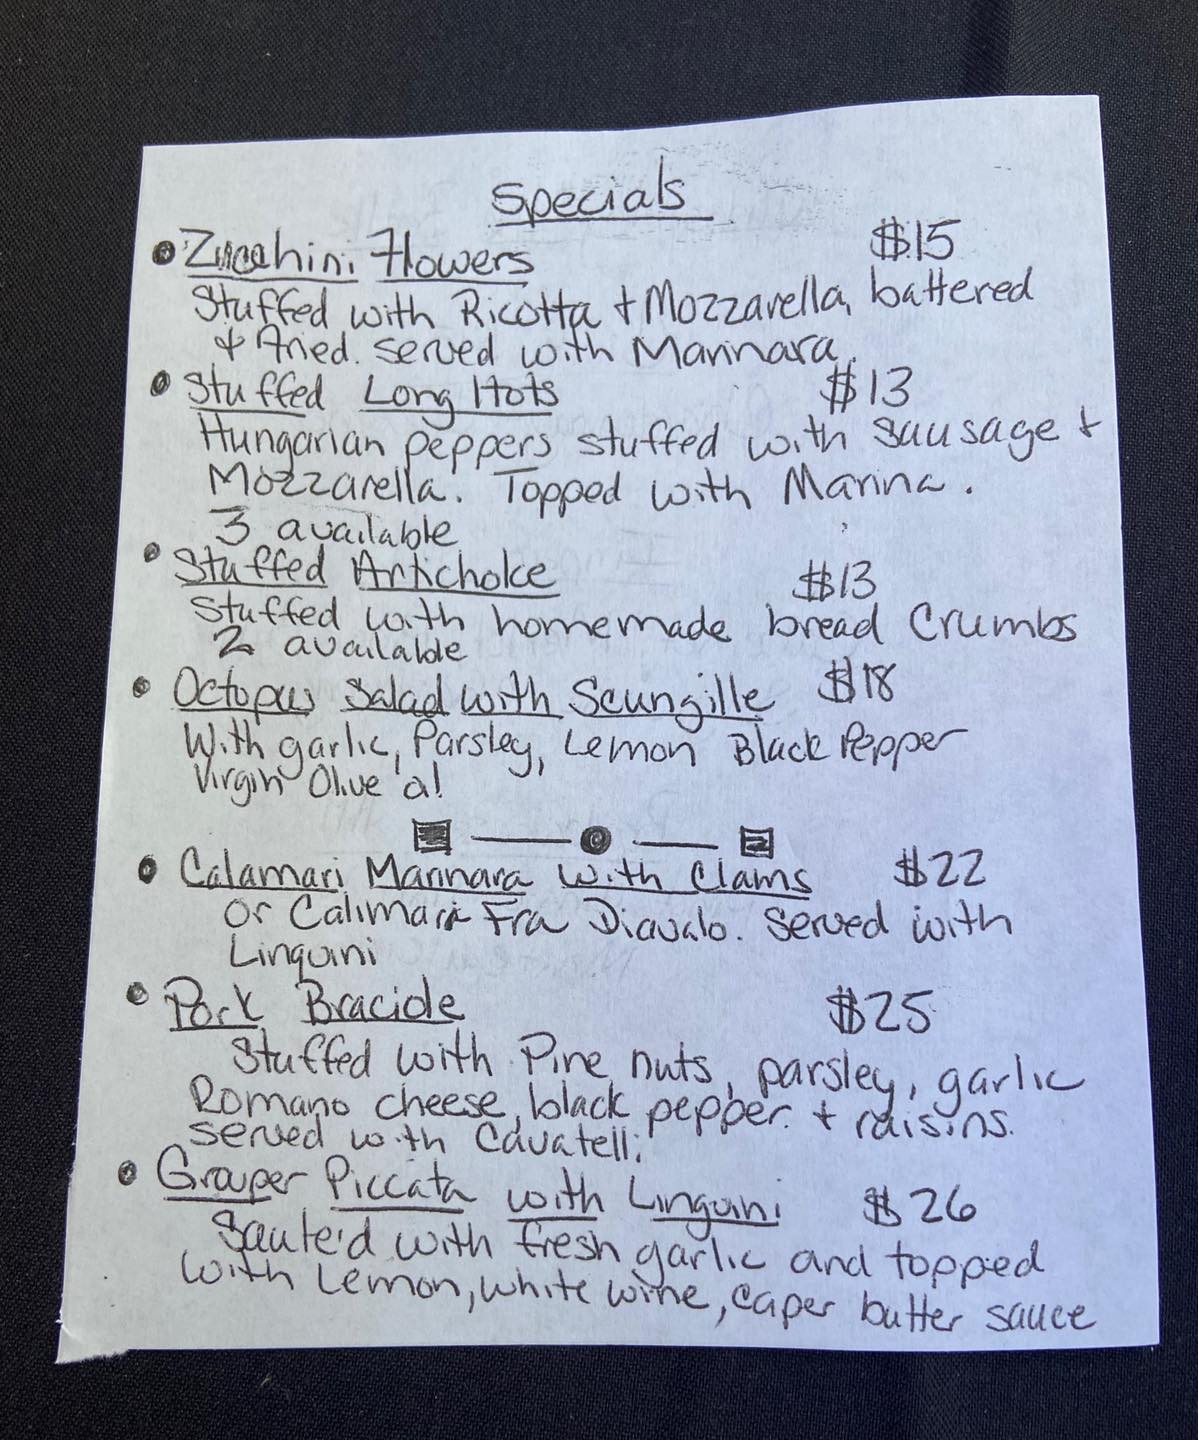 Specials
• Zucchini Flowers $15
Stuffed with Ricotta + Mozzarella, battered
+ fried. served with Marinara.
• Stuffed Long Hots $13
Hungarian peppers stuffed with sausage +
Mozzarella. Topped with Marina.
3 available
• Stuffed Artichoke $13
Stuffed with homemade bread crumbs
2 available
• Octopus Salad with Scungille $18
With garlic, Parsley, Lemon Black Pepper
Virgin Olive oil
• Calamari Marinara with Clams $22
or Calimari Fra Diavalo. Served with
Linguini
• Pork Braciole $25
Stuffed with Pine nuts, parsley, garlic
Romano cheese, black pepper. + raisins.
served with Cavatelli
• Grouper Piccata with Linguini $26
Saute'd with fresh garlic and topped
with Lemon, white wine, caper butter sauce